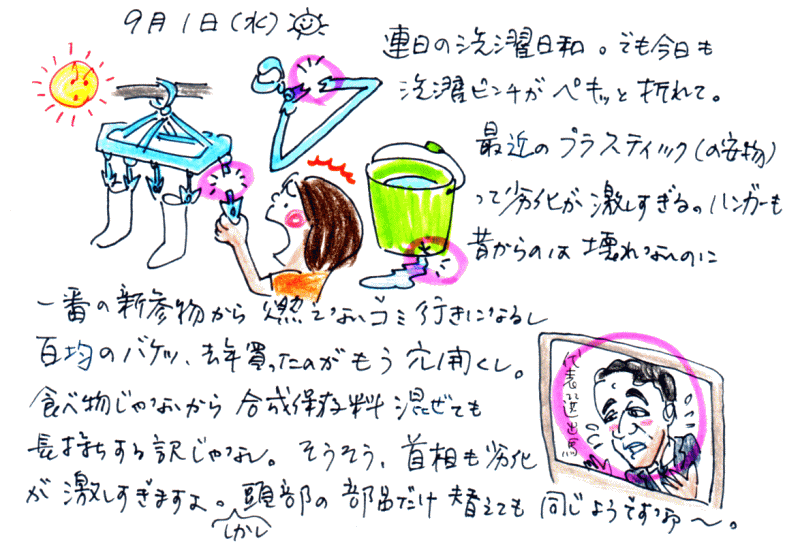 9月1日(水)
連日の洗濯日和。でも今日も
洗濯ピンチがペキッと折れて。
最近のプラスティック(の安物)
って劣化が激しすぎる。ハンガーも
昔からのは壊れないのに
一番の新参物から燃えないゴミ行きになるし
百均のバケツ、去年買ったのがもう穴開くし。
食べ物じゃないから合成保存料混ぜても
長持ちする訳じゃなし。そうそう、首相も劣化
が激しすぎますよ。頭部の部品だけ替えても同じようですなァ〜。
しかし
代表選出馬